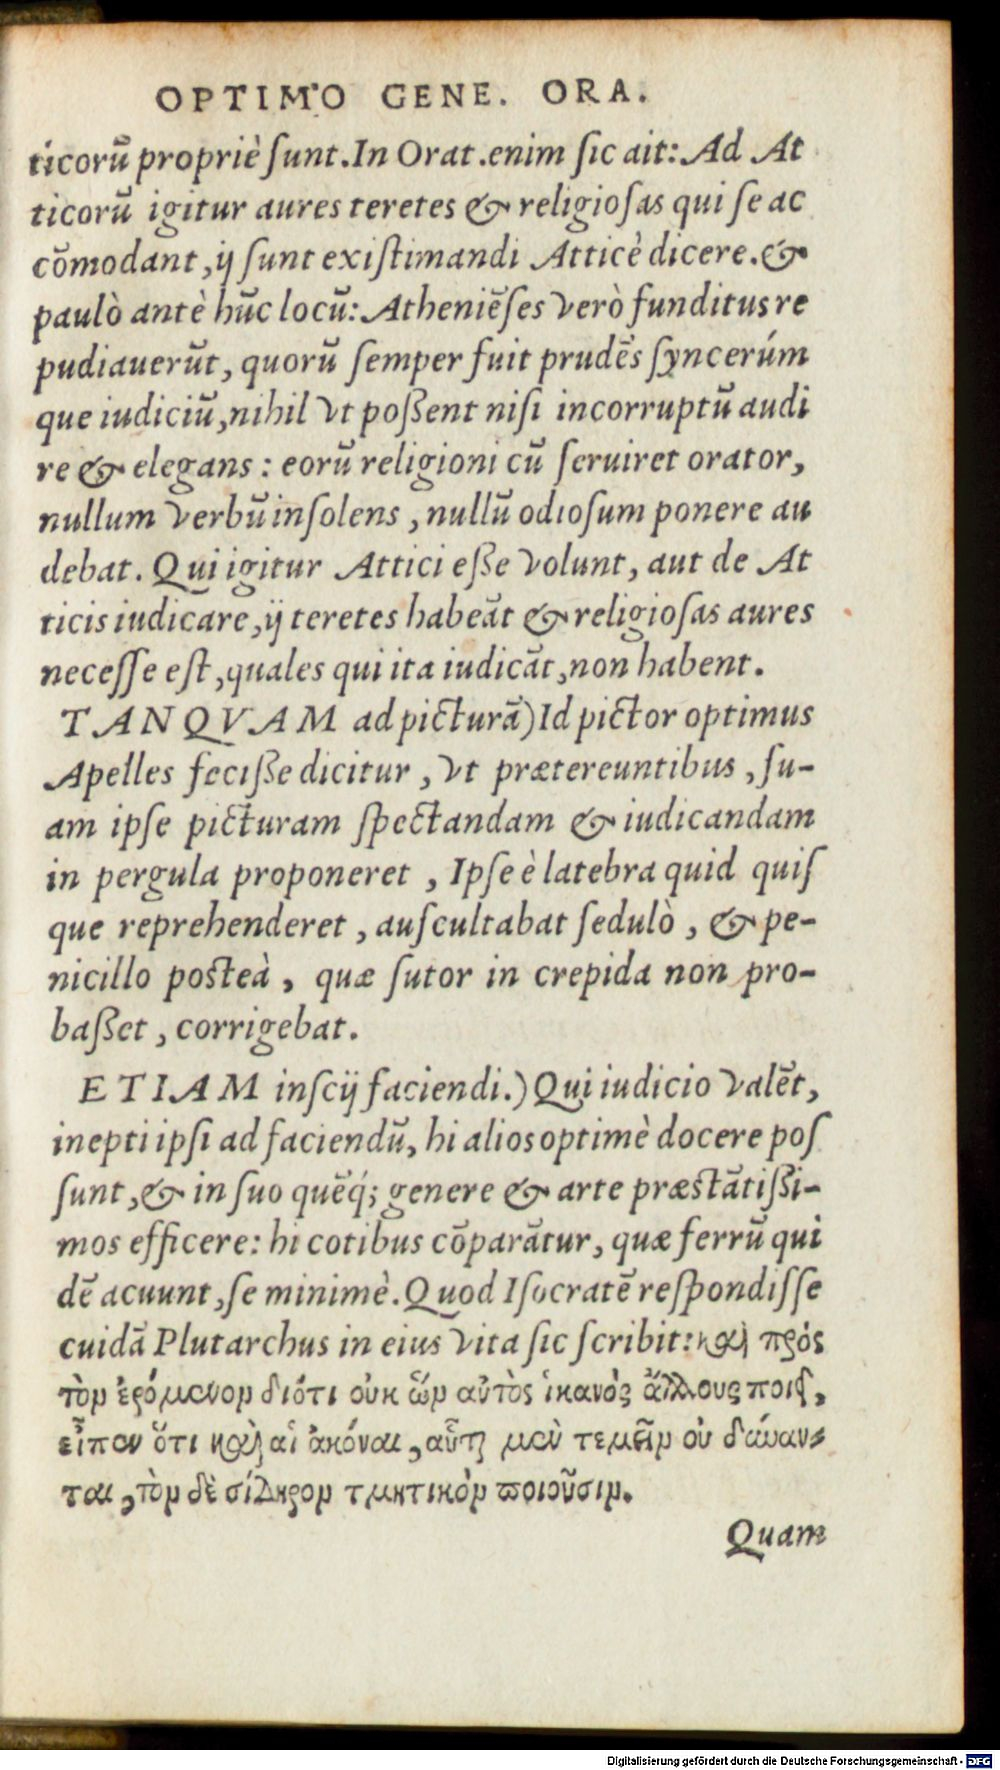 OPTIMO GENE. ORA.
ticorũ propriè ſunt. In Orat. enim ſic ait: Ad At
ticorũ igitur aures teretes & religioſas qui ſe ac
cõmodant, ij ſunt exiſtimandi Atticè dicere. &
paulò antè hũc locũ: Atheniẽſes verò funditus re
pudiauerũt, quorũ ſemper fuit prudẽs ſyncerúm
que iudiciũ, nihil vt poßent niſi incorruptũ audi
re & elegans: eorũ religioni cũ ſeruiret orator,
nullum verbũ inſolens, nullũ odioſum ponere au
debat. Qui igitur Attici eße volunt, aut de At
ticis iudicare, ij teretes habeãt & religioſas aures
neceſſe eſt, quales qui ita iudicãt, non habent.
TANQVAM ad picturã) Id pictor optimus
Apelles feciße dicitur, vt prætereuntibus, ſu-
am ipſe picturam ſpectandam & iudicandam
in pergula proponeret, Ipſe è latebra quid quiſ
que reprehenderet, auſcultabat ſedulò, & pe-
nicillo poſteà, quæ ſutor in crepida non pro-
baßet, corrigebat.
ETIAM inſcij faciendi.) Qui iudicio valẽt,
inepti ipſi ad faciendũ, hi alios optimè docere poſ
ſunt, & in ſuo quẽq́; genere & arte præſtãtißi-
mos efficere: hi cotibus cõparãtur, quæ ferrũ qui
dẽ acuunt, ſe minimè. Quod Iſocratẽ reſpondiſſe
cuidã Plutarchus in eius vita ſic ſcribit: καὶ πρός
τὸν ἐρόμενον διότι οὐκ ὢν αὐτὸς ἱκανός ἄλλους ποιεῖ,
εἶπεν ὅτι καὶ αἱ ἀκόναι, αὗται μὲν τεμεῖν οὐ δύναν-
ται, τὸν δὲ σίδηρον τμητικὸν ποιοῦσιν.
Quam
Digitalisierung gefördert durch die Deutsche Forschungsgemeinschaft - DFG